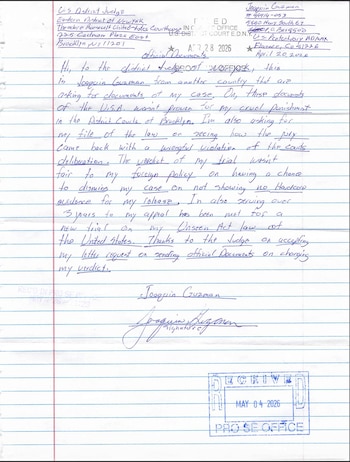 U.S District Judge
Eastern District of New York
Theodore Roosevelt United States Courthouse
225 Cadman Plaza East
Brooklyn NY 11201
Joaquin Guzman
U.S Penitentiary ADMAX
Florence, Co 81226
April 20, 2026
APR 28 2026
Official Documents
Hi, to the district Judge this
is Joaquin Guzman from another country that are
asking for documents of my case. On, those documents
of the U.S.A. wasnt proven for my cruel punishment
in the District Courts of Brooklyn. I'm also asking for
my file of the law on seeing how the jury
came back with a wrongful violation of the courts
deliberation. The verdict of my trial wasnt
fair to my foreign policy on having a chance
to dismiss my case on not showing no Hardcore
evidence for my release. In also serving over
years to my appeal has been met for a
new trial on my Unseen Act law out
the United States. Thanks to the Judge on accepting
my letter request on sending official Documents on changing
my verdict.
Joaquin Guzman
Joaquin Guzman
signature
RECEIVED
MAY 04 2026
PRO SE OFFICE